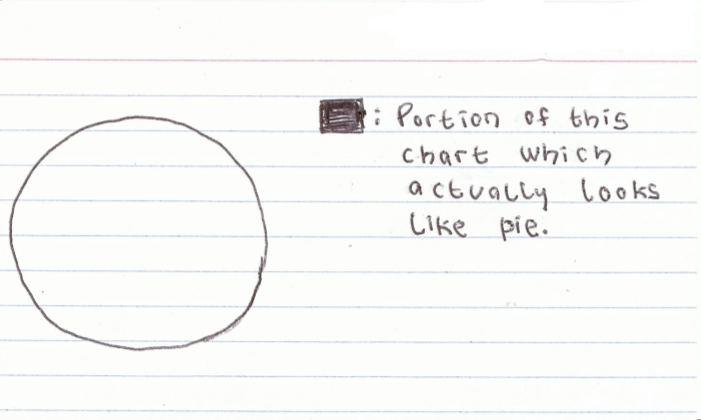 : Portion of this
chart which
actually looks
like pie.